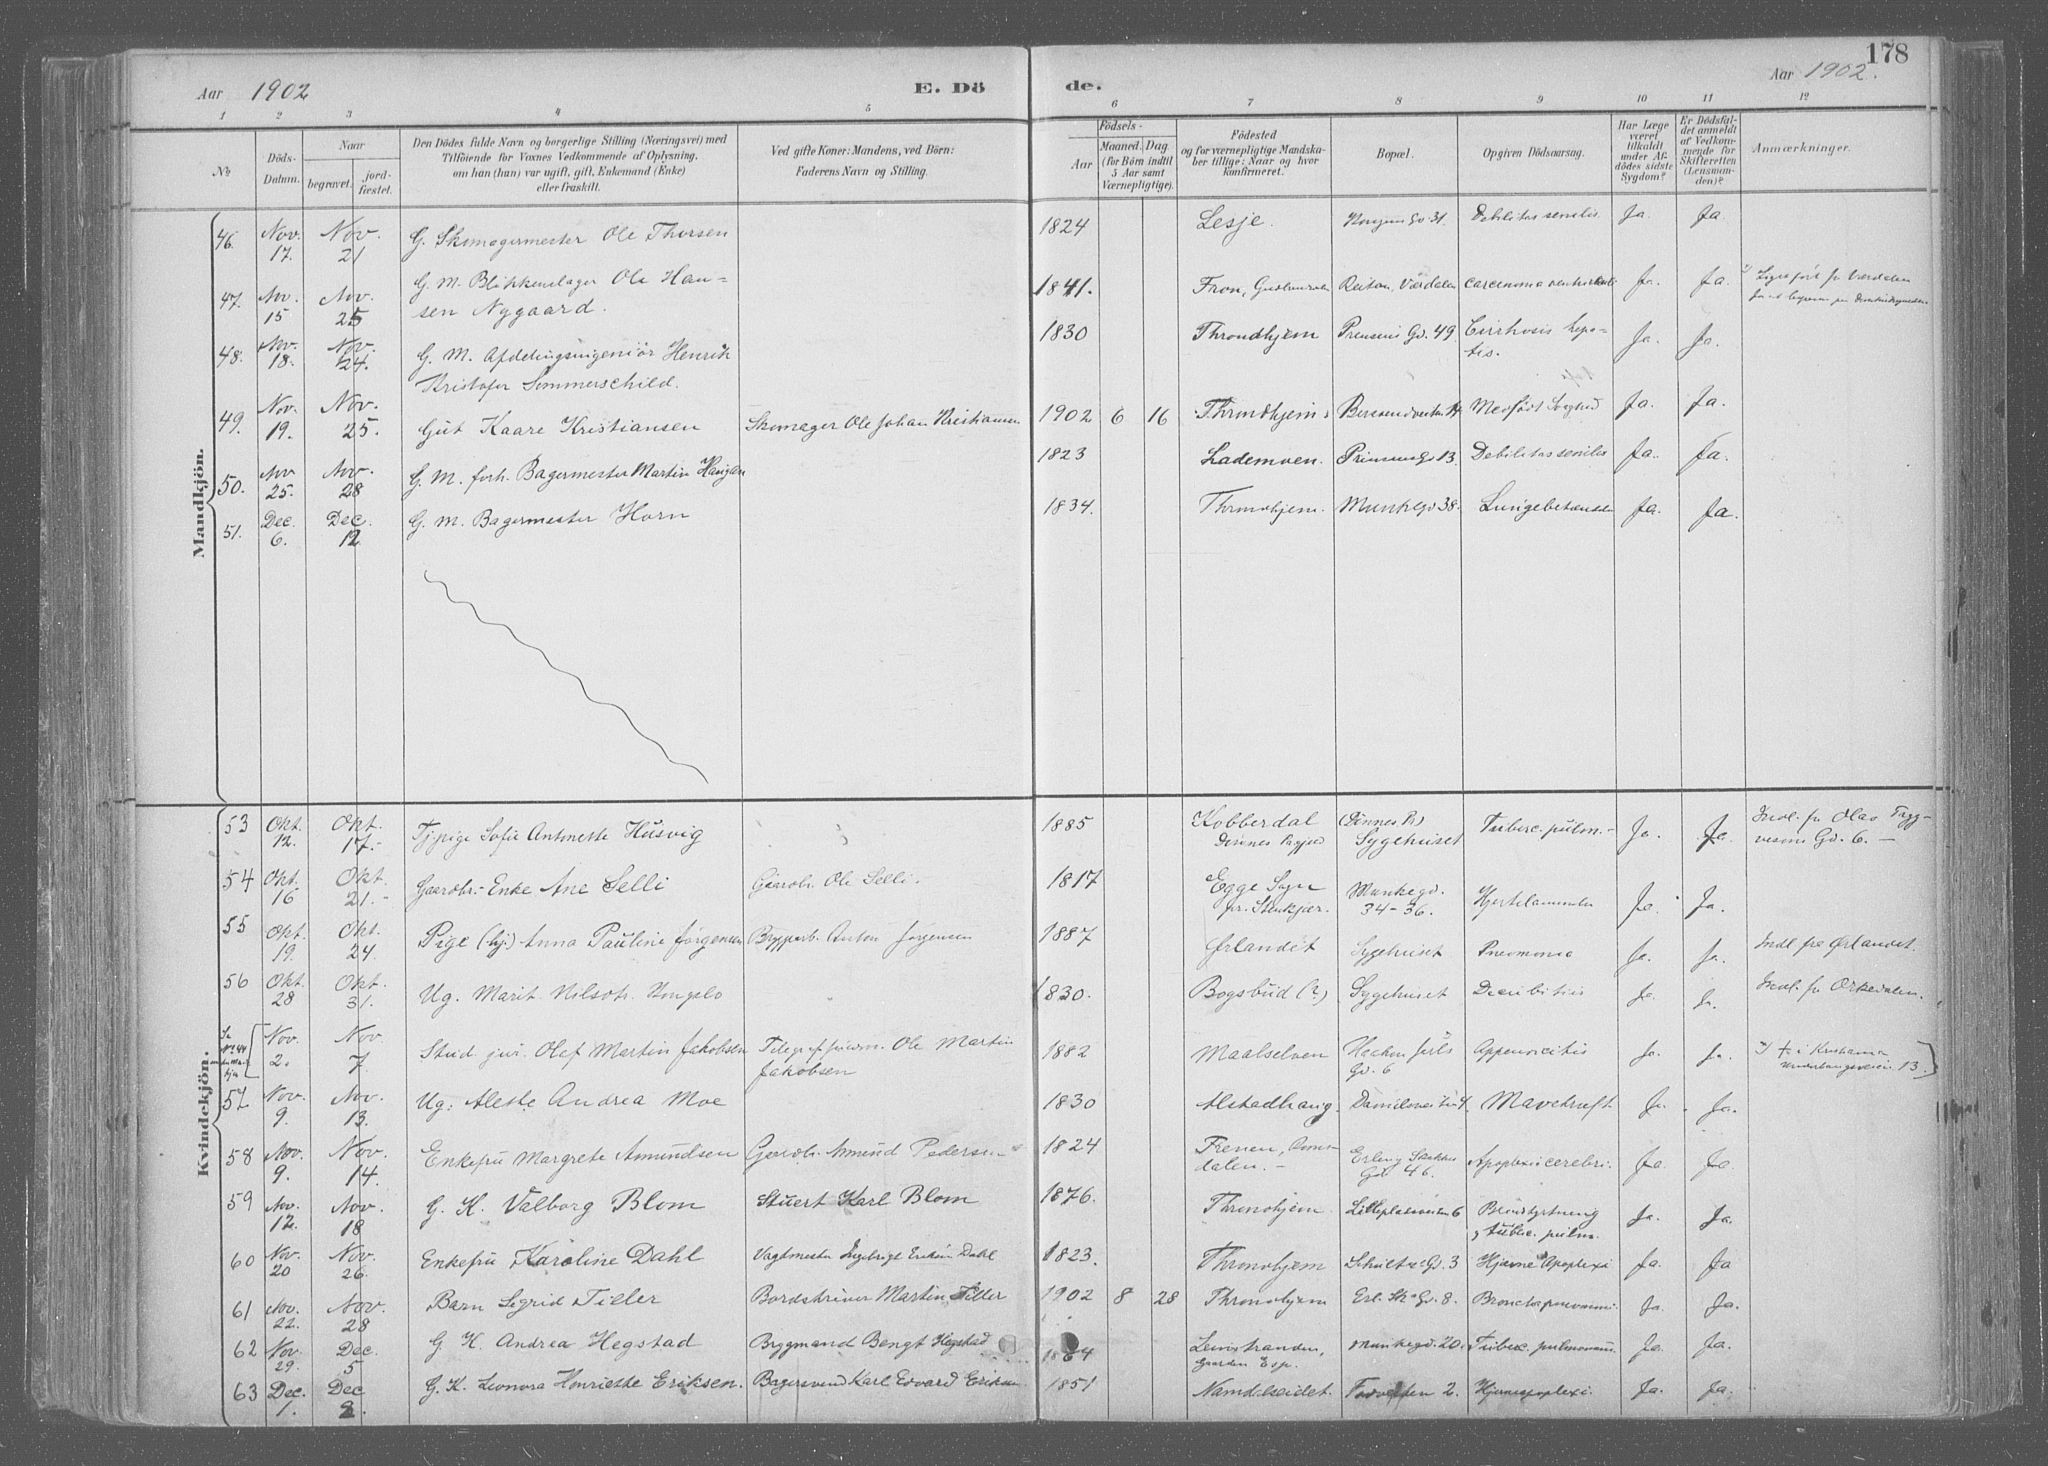 178
Aar 1902
E. Dö
de.
Aar 1902.
1 2 3 4 5 6 7 8 9 10 11 12
No
Döds-
Datum.
Naar
begravet.
jord-
fæstet.
Den Dödes fulde Navn og borgerlige Stilling (Næringsvei) med
Tilföiende for Voxnes Vedkommende af Oplysning,
om han (hun) var ugift, gift, Enkemand (Enke)
eller fraskilt.
Ved gifte Koner: Mandens, ved Börn:
Faderens Navn og Stilling.
Födsels-
Aar
Maaned.
Dag
(for Börn indtil
5 Aar samt
Værnepligtige).
Födested
og for værnepligtige Mandska-
ber tillige: Naar og hvor
konfirmeret.
Bopæl.
Opgiven Dödsaarsag.
Har Læge
været
tilkaldt
under Af-
dödes sidste
Sygdom?
Er Dödsfal-
det anmeldt
af Vedkom-
mende for
Skifteretten
(Lensman-
den)?
Anmærkninger.
Mandkjön.
46. Nov. 17. Nov. 21 G. Skomagermester Ole Thorsen 1824 Lesje. Gd. 31. Debilitas senilis Ja. Ja.
47. Nov. 15 Nov. 25 G. M. Blikkenslager Ole Han-
sen Nygaard. 1841. Fron, Reitan, Værdalen carcinoma Ja. Ja. fr. Værdalen
48. Nov. 18. Nov. 24. G. M. Afdelingsingeniör Henrik
Kristofer Sommerschild. 1830 Throndhjem Prinsens Gd. 49 Cirrhosis hepa-
tis. Ja. Ja.
49. Nov. 19. Nov. 25. Gut Kaare Kristiansen Skomager Ole Johan Kristiansen 1902 6 16 Throndhjem Medfödt Svaghed Ja. Ja.
50. Nov 25. Nov. 28 G. M. forh. Bagermester Martin 1823 Lademoen. Prinsens Gd 13. Debilitas senilis Ja. Ja.
51. Dec. 6. Dec. 12 G. M. Bagermester Horn 1834. Throndhjem. Munkegd 38. Lungebetændelse Ja. Ja.
Kvindekjön.
53 Okt. 12. Okt. 17.- Tjpige Sofie Antonette Husvig 1885 Kobberdal (Dönnes P.)
Sygehuset Tuberc. pulm.- Ja. Ja. Indl. fr Olav Tryg-
vesons Gd. 6. -
54 Okt. 16 Okt. 21.- Gaardbr.- Enke Ane Selli Gaardbr. Ole Selli. 1817 Egge Sogn
pr. Stenkjær. Munkegd.
34-36. Ja. Ja.
55 Okt. 19. Okt. 24 Pige (hj.) Anna Pauline Jørgensen Anton Jørgensen 1887 Ørlandet Sygehuset Pneumonia Ja. Ja. Indl. fra Ørlandet.
56 Okt. 28 Okt. 31. Ug. Marit Nilsdtr. 1830. Bogsbud (?) Sygehuset Decubitus Ja. Ja. Indl. fr Orkedalen.
Se No 44
Nov. 2. Nov 7. Stud. jur. Olaf Martin Jakobsen Ole Martin
Jakobsen 1882 Maalselven Haakon Jarls
Gd. 6 Appendicitis Ja. Ja. + i Kristiania
13.
57 Nov. 9. Nov. 13. Ug. Alette Andrea Moe 1830 Alstadhaug. Mavekræft. Ja. Ja.
58 Nov. 9. Nov. 14. Enkefru Margrete Amundsen Gaardbr. Amund Pedersen 1824 Frenen, Roms-
dalen. - Erling Skakkes
Gd 46. Apoplexi cerebri. Ja. Ja.
59 Nov. 12. Nov. 18 G. K. Valborg Blom Stuert Karl Blom 1876. Throndhjem. 6 Brönstyrtning
og tuberc. pulm. Ja. Ja.
60 Nov. 20 Nov. 26. Enkefru Karoline Dahl Vagtmester Ingebrigt Eriksen Dahl 1823. Throndhjem Schultz Gd. 3 Hjerne Apoplexi Ja. Ja
61 Nov. 22. Nov. 28 Barn Sigrid Tiller Bordskriver Martin Tiller 1902 8 28 Throndhjem Erl. Sk. Gd. 8. Ja. Ja.
62 Nov. 29. Dec. 5 G. K. Andrea Hegstad Bryggmand Bengt Hegstad Lensstranden,
Gaarden Esp. Munkegd. 20. Tuberc. pulmonum Ja. Ja.
63 Dec. 1. Dec G. K. Leonora Henriette Eriksen. Bagersvend Karl Edvard Eriksen 1851 Namdalseidet. 2. Hjerneapoplexi. Ja. Ja.